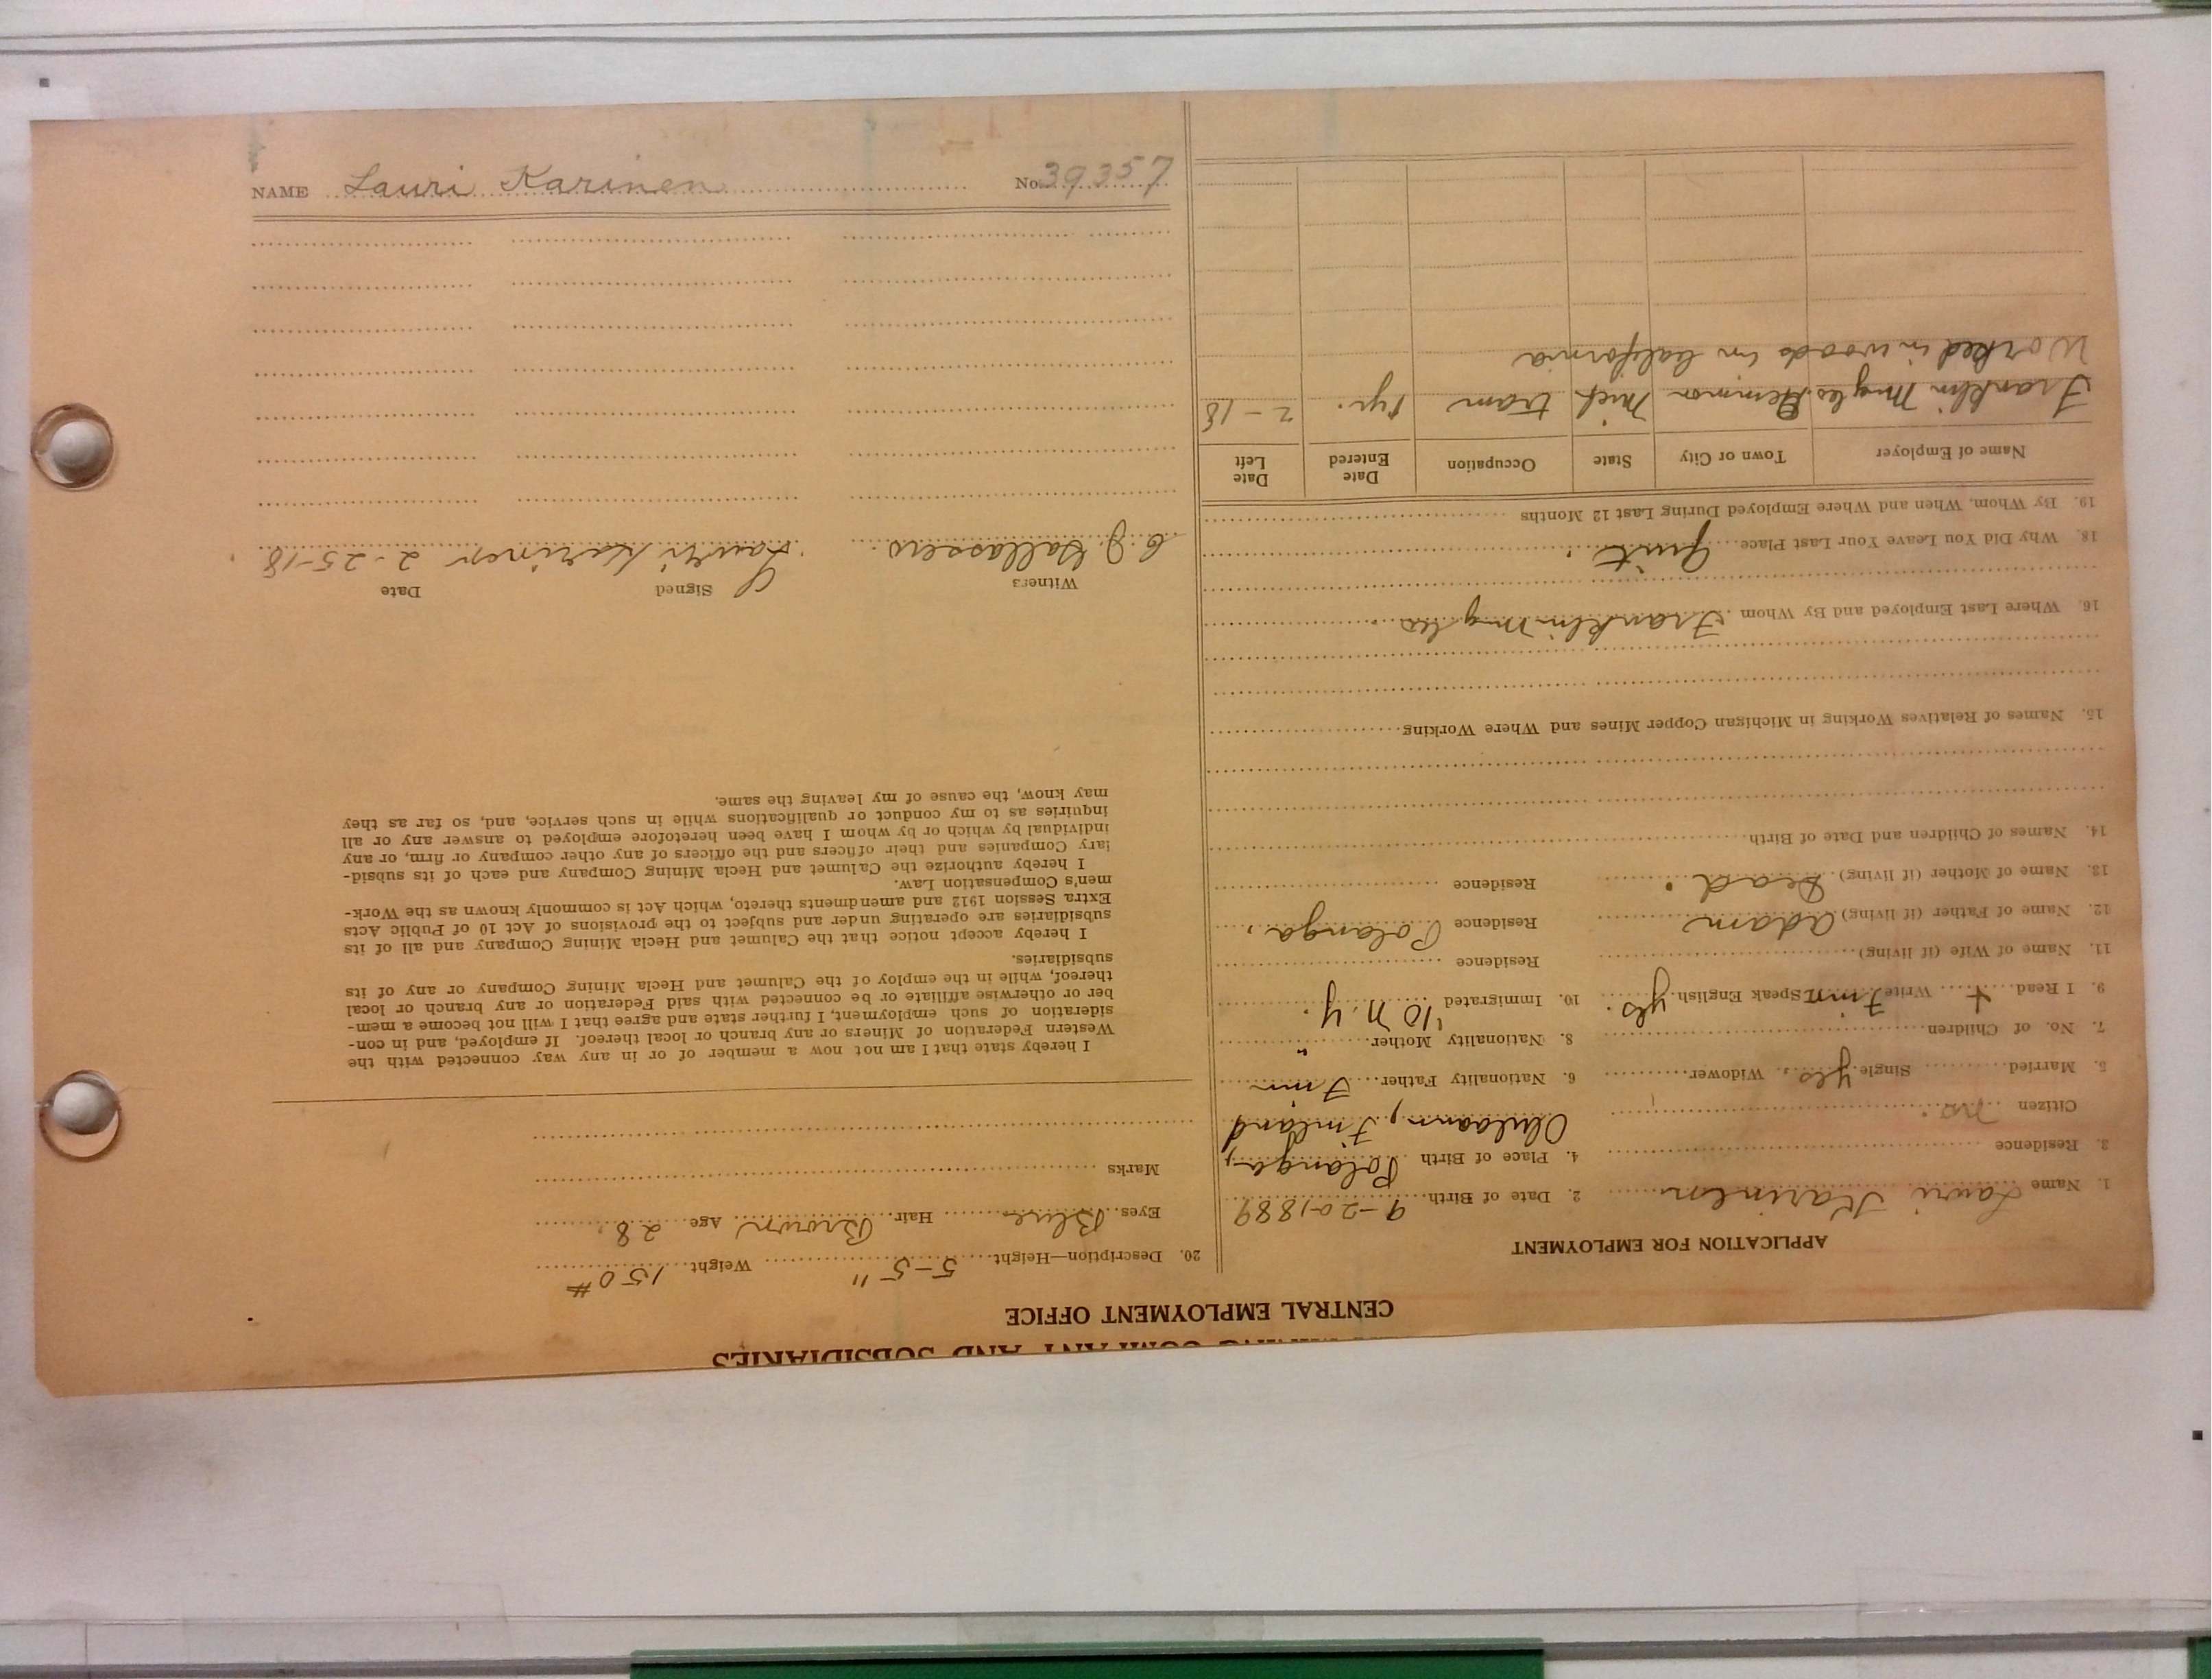 MINING COMPANY AND SUBSIDIARIES
CENTRAL EMPLOYMENT OFFICE
APPLICATION FOR EMPLOYMENT
1. Name Lauri Karinen 2. Date of Birth 9-20-1889
3. Residence 4. Place of Birth Polanga,
Citizen no. Finland
5. Married Single yes, Widower 6. Nationality Father Finn
7. No. of Children 8. Nationality Mother "
9. I Read + Write Finn Speak English yes. 10. Immigrated '10 N.Y.
11. Name of Wife (if living) Residence
12. Name of Father (if living) Adam Residence Polanga,
13. Name of Mother (if living) Dead. Residence
14. Names of Children and Date of Birth
15. Names of Relatives Working in Michigan Copper Mines and Where Working
16. Where Last Employed and By Whom Franklin Mg Co.
18. Why Did You Leave Your Last Place Quit.
19. By Whom, When and Where Employed During Last 12 Months
Name of Employer Town or City State Occupation Date Entered Date Left
Franklin Mg Co. Mich tram 1 yr. 2-18
Worked in woods in California
20. Description—Height 5-5" Weight 150#
Eyes Blue Hair Brown Age 28.
Marks
I hereby state that I am not now a member of or in any way connected with the
Western Federation of Miners or any branch or local thereof. If employed, and in con-
sideration of such employment, I further state and agree that I will not become a mem-
ber or otherwise affiliate or be connected with said Federation or any branch or local
thereof, while in the employ of the Calumet and Hecla Mining Company or any of its
subsidiaries.
I hereby accept notice that the Calumet and Hecla Mining Company and all of its
subsidiaries are operating under and subject to the provisions of Act 10 of Public Acts
Extra Session 1912 and amendments thereto, which Act is commonly known as the Work-
men's Compensation Law.
I hereby authorize the Calumet and Hecla Mining Company and each of its subsid-
iary Companies and their officers and the officers of any other company or firm, or any
individual by which or by whom I have been heretofore employed to answer any or all
inquiries as to my conduct or qualifications while in such service, and, so far as they
may know, the cause of my leaving the same.
Witness Signed Date
Lauri Karinen 2-25-18
NAME Lauri Karinen No. 39357